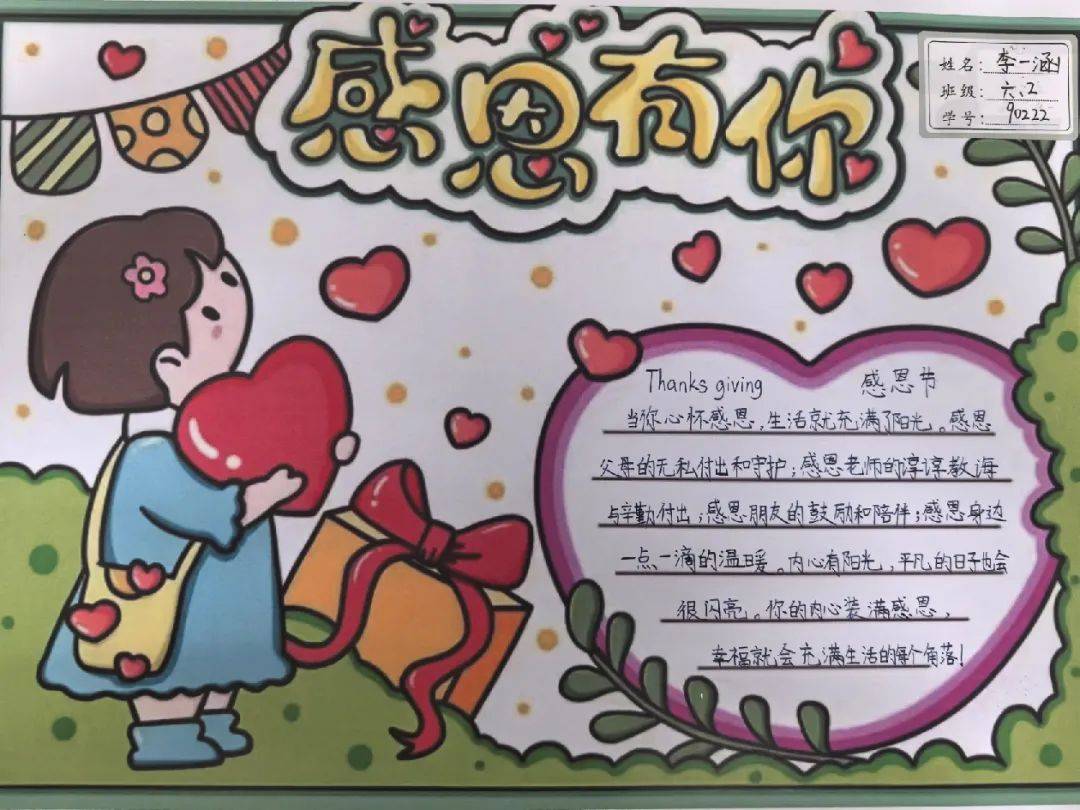 感恩有你
姓名：李一涵
班级：六、2
学号：90222
Thanks giving 感恩节
当你心怀感恩，生活就充满了阳光。感恩
父母的无私付出和守护；感恩老师的谆谆教诲
与辛勤付出；感恩朋友的鼓励和陪伴；感恩身边
一点一滴的温暖。内心有阳光，平凡的日子也会
很闪亮。你的内心装满感恩，
幸福就会充满生活的每个角落！